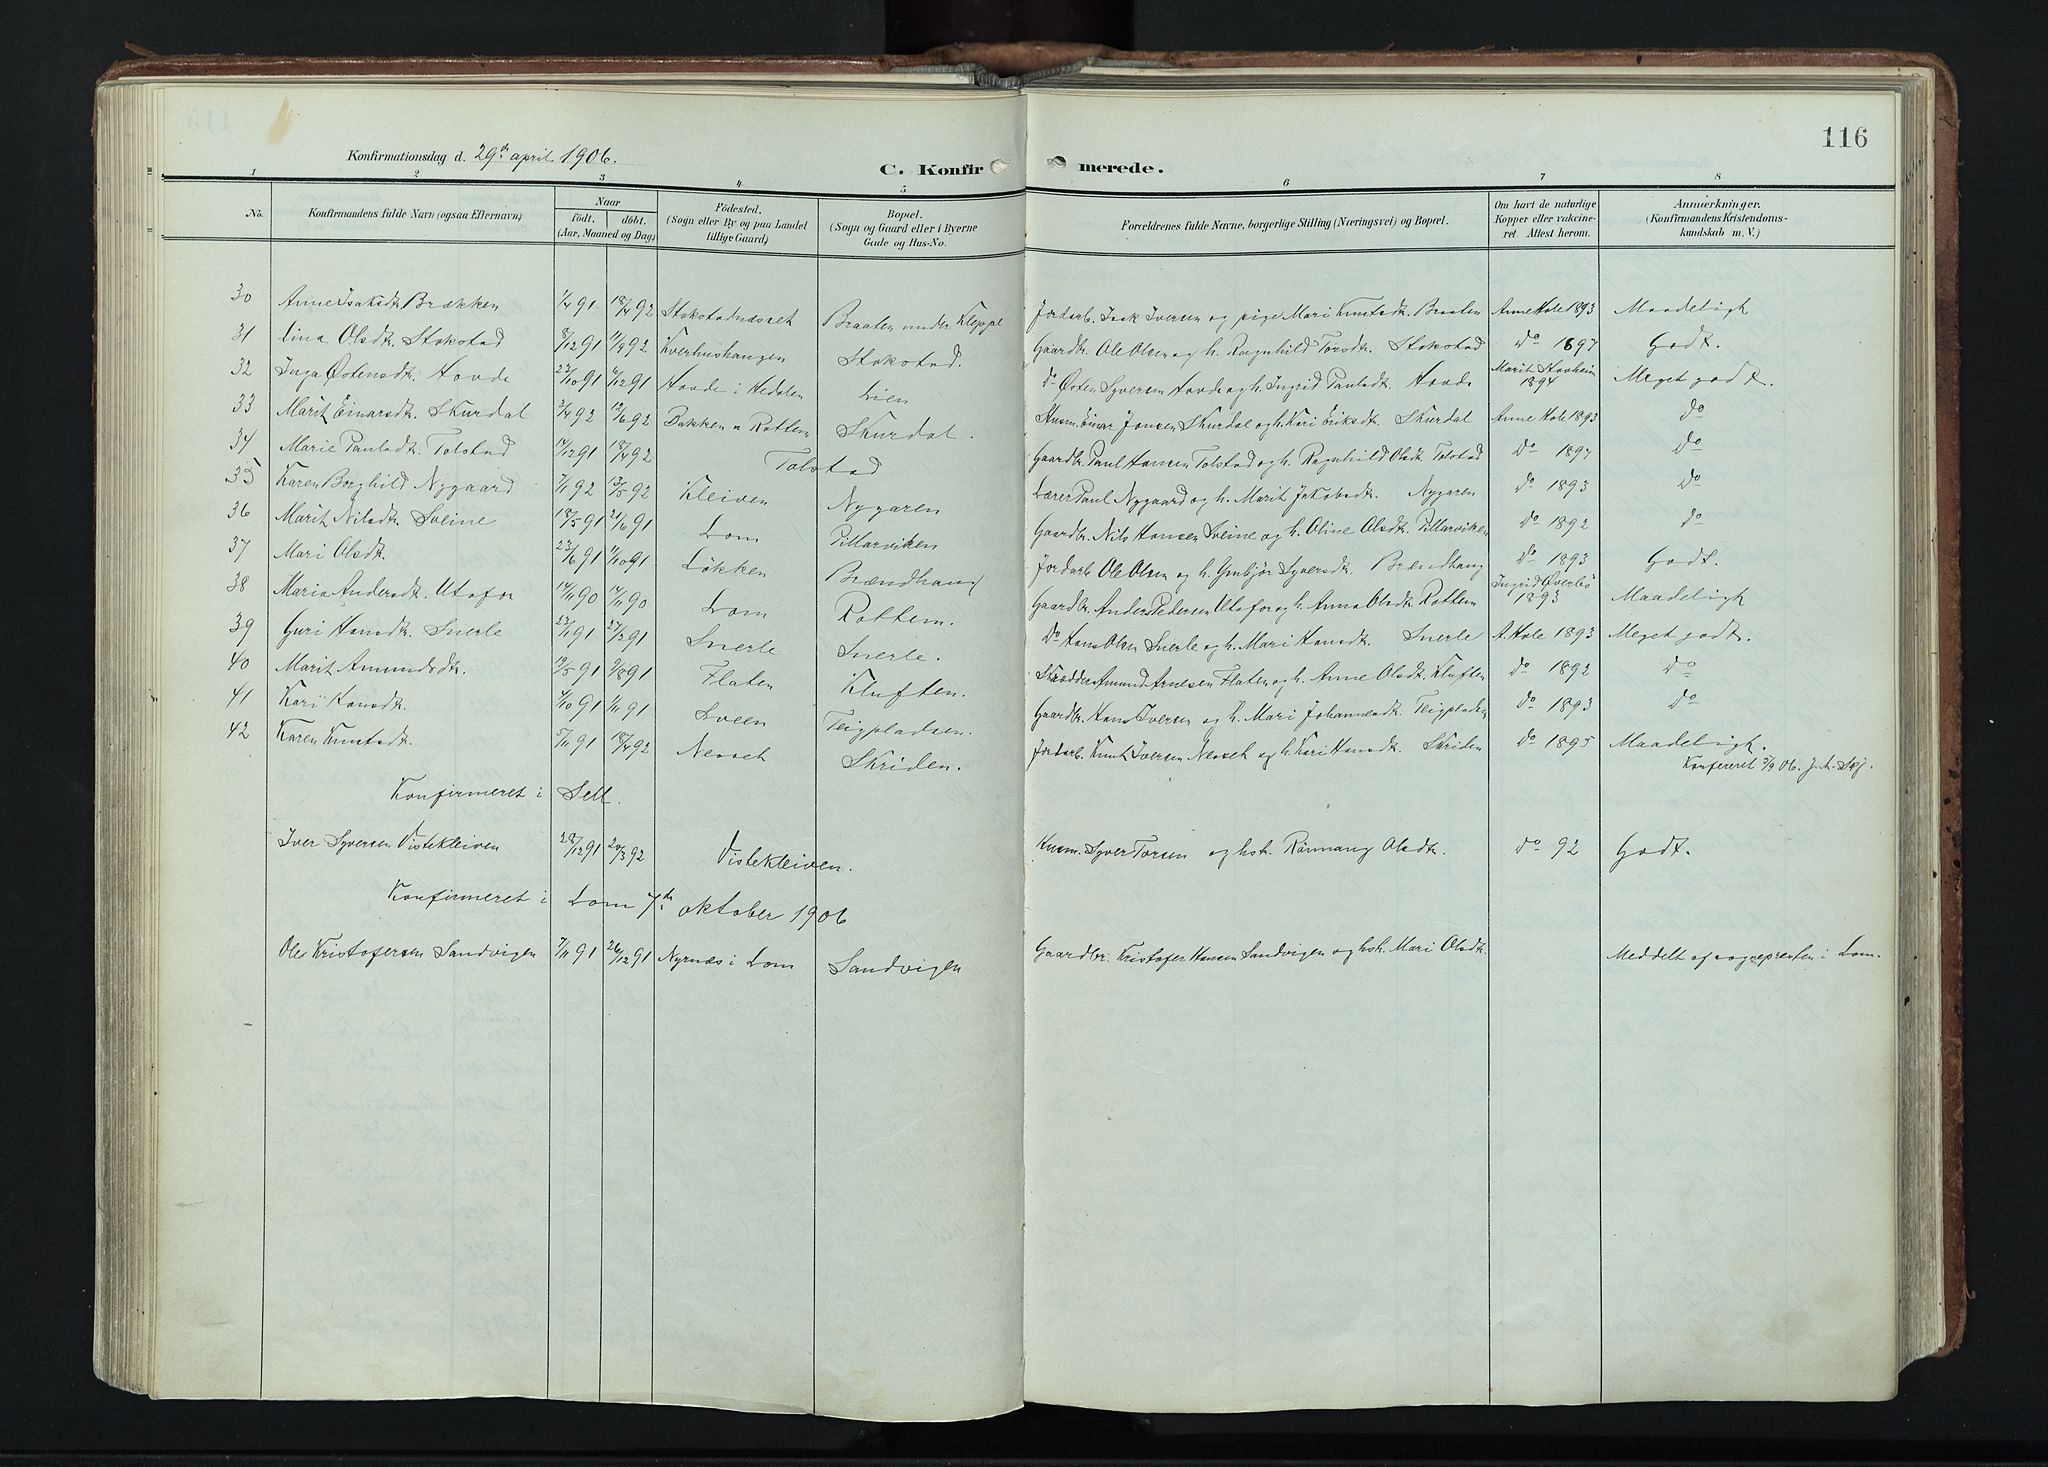 116
Konfirmationsdag d. 29de april 1906.
C. Konfirmerede.
1 2 3 4 5 6 7 8
No. Konfirmandens fulde Navn (ogsaa Efternavn) Naar født. døbt. (Aar, Maaned og Dag) Fødested. (Sogn eller By og paa Landet tillige Gaard) Bopæl. (Sogn og Gaard eller i Byerne Gade og Hus-No. Forældrenes fulde Navne, borgerlige Stilling (Næringsvei) og Bopæl. Om havt de naturlige Kopper eller vaccineret Attest herom. Anmærkninger. (Konfirmandens Kristendomskundskab m. V.)
30 Anne Isaksdtr. Brækken 1/4 91 18/4 92 Stokstadnæsset Braaten under Kleppe Jordarb. Isak Iversen og pige Mari Knutsdtr. Braaten Anne Hole 1893 Maadeligt
31 Lina Olsdtr. Stokstad 8/12 91 11/9 92 Kverhushaugen Stokstad. Gaardbr. Ole Olsen og h. Ragnhild Torsdtr. Stokstad Do 1897 Godt.
32 Inga Østensdtr. Hovde 22/10 91 6/12 91 Hovde i Hedalen Lien Do Østen Syversen Hovde og h. Ingrid Paulsdtr. Hovde Marit Hovheim 1894 Meget godt.
33 Marit Einarsdtr. Skurdal 3/4 92 12/6 92 Bakken u Rottem Skurdal. Husm. Einar Jonsen Skurdal og h. Kari Eriksdtr. Skurdal Anne Hole 1893 Do
34 Marie Paulsdtr. Tolstad 14/12 91 18/4 92 Tolstad Gaardbr. Paul Hansen Tolstad og h. Ragnhild Olsdtr. Tolstad Do 1897 Do
35 Karen Borghild Nygaard 7/1 92 13/5 92 Kleiven Nygaren Lærer Paul Nygaard og h. Marit Jakobsdtr. Nygaren Do 1893 Do
36 Marit Nilsdtr. Sveine 18/5 91 21/6 91 Lom Pillarviken Gaardbr. Nils Hansen Sveine og h. Oline Olsdtr. Pillarviken Do 1892 Do
37 Mari Olsdtr. 23/6 91 11/10 91 Løkken Brændhaug Jordarb. Ole Olsen og h. Gunbjør Syversdtr. Brændhaug Do 1893 Godt.
38 Maria Andersdtr. Utafor 14/11 90 14/11 90 Lom Rottem. Gaardbr. Anders Pedersen Utafor og h. Anna Olsdtr. Rottem Ingrid Øverbø 1893 Maadeligt
39 Guri Hansdtr. Snerle 23/1 91 27/3 91 Snerle Snerle. Do Hans Olsen Snerle og h. Mari Hansdtr. Snerle A. Hole 1893 Meget godt.
40 Marit Amundsdtr. 12/5 91 2/8 91 Flaten Kluften. Skrædder Amund Arnesen Flaten og h. Anne Olsdtr. Kluften Do 1892 Do
41 Kari Hansdtr. 4/10 91 1/11 91 Sveen Teigpladsen. Gaardbr. Hans Iversen og h. Mari Johannesdtr. Teigpladsen Do 1893 Do
42 Karen Knutsdtr. 5/11 91 18/4 92 Nesset Skriden. Jordarb. Knut Iversen Nesset og h. Kari Hansdtr. Skriden Do 1895 Maadeligt.
Konfereret 3/9 06. J. A. Skj.
Konfirmeret i Sell.
Iver Syversen Vistekleiven 28/12 91 20/3 92 Vistekleiven. Husm. Syver Torsen og hstr. Rønnaug Olsdtr. Do 92 Godt.
Konfirmeret i Lom 7de oktober 1906
Ole Kristofersen Sandvigen 7/11 91 26/12 91 Nyrnæs i Lom Sandvigen Gaardbr. Kristofer Hansen Sandvigen og hstr. Mari Olsdtr. Meddelt af sognepresten i Lom.